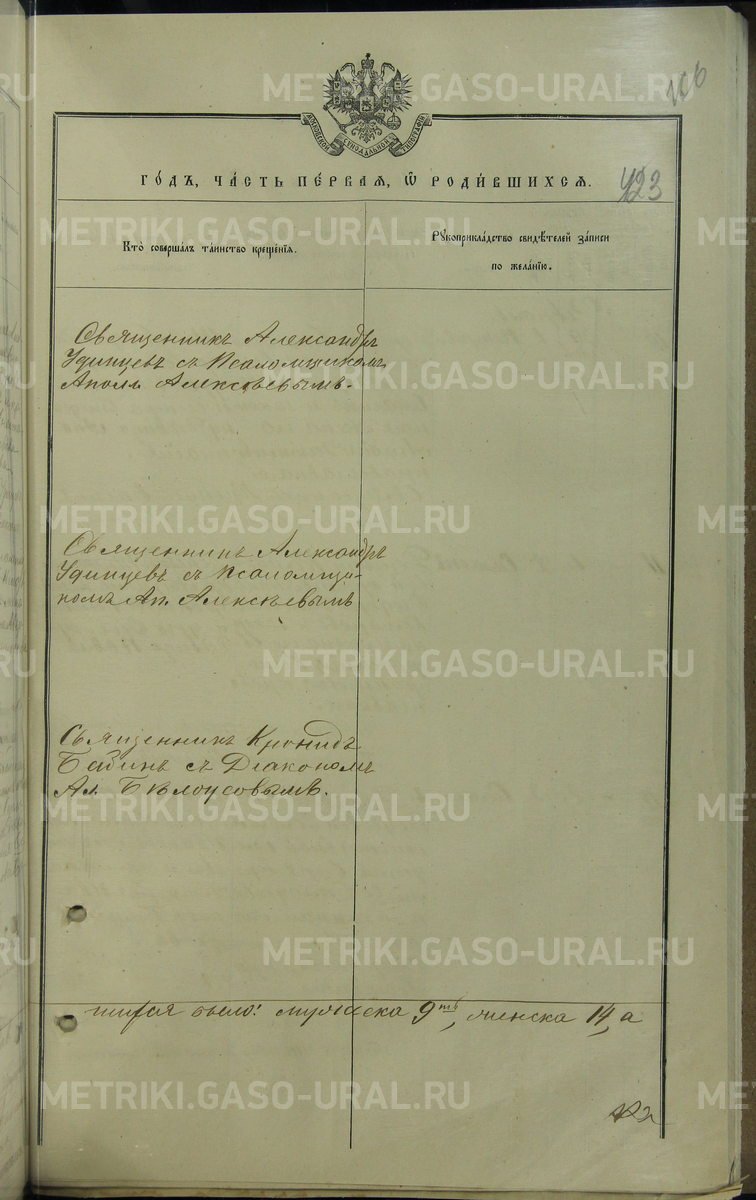 106
МОСКОВСКОЙ СѴНОДАЛЬНОЙ ТИПОГРАФІИ
423
ГО́ДЪ, ЧА́СТЬ ПЕ́РВАЯ, Ѿ РОДИ́ВШИХСЯ.
Кто̀ совершалъ та́инство креще́нїя.
Рꙋкоприкла́дство свидѣ́телей за́писи
по жела́нїю.
Священникъ Александръ
Удинцевъ съ Псаломщикомъ
Аполл. Алексѣевымъ.
Священникъ Александръ
Удинцевъ съ Псаломщи-
комъ Ап. Алексѣевымъ
Священникъ Кронидъ
съ Діакономъ
Ал. Бѣлоусовымъ.
было: мужеска 9ть, женска 14, а
METRIKI.GASO-URAL.RU